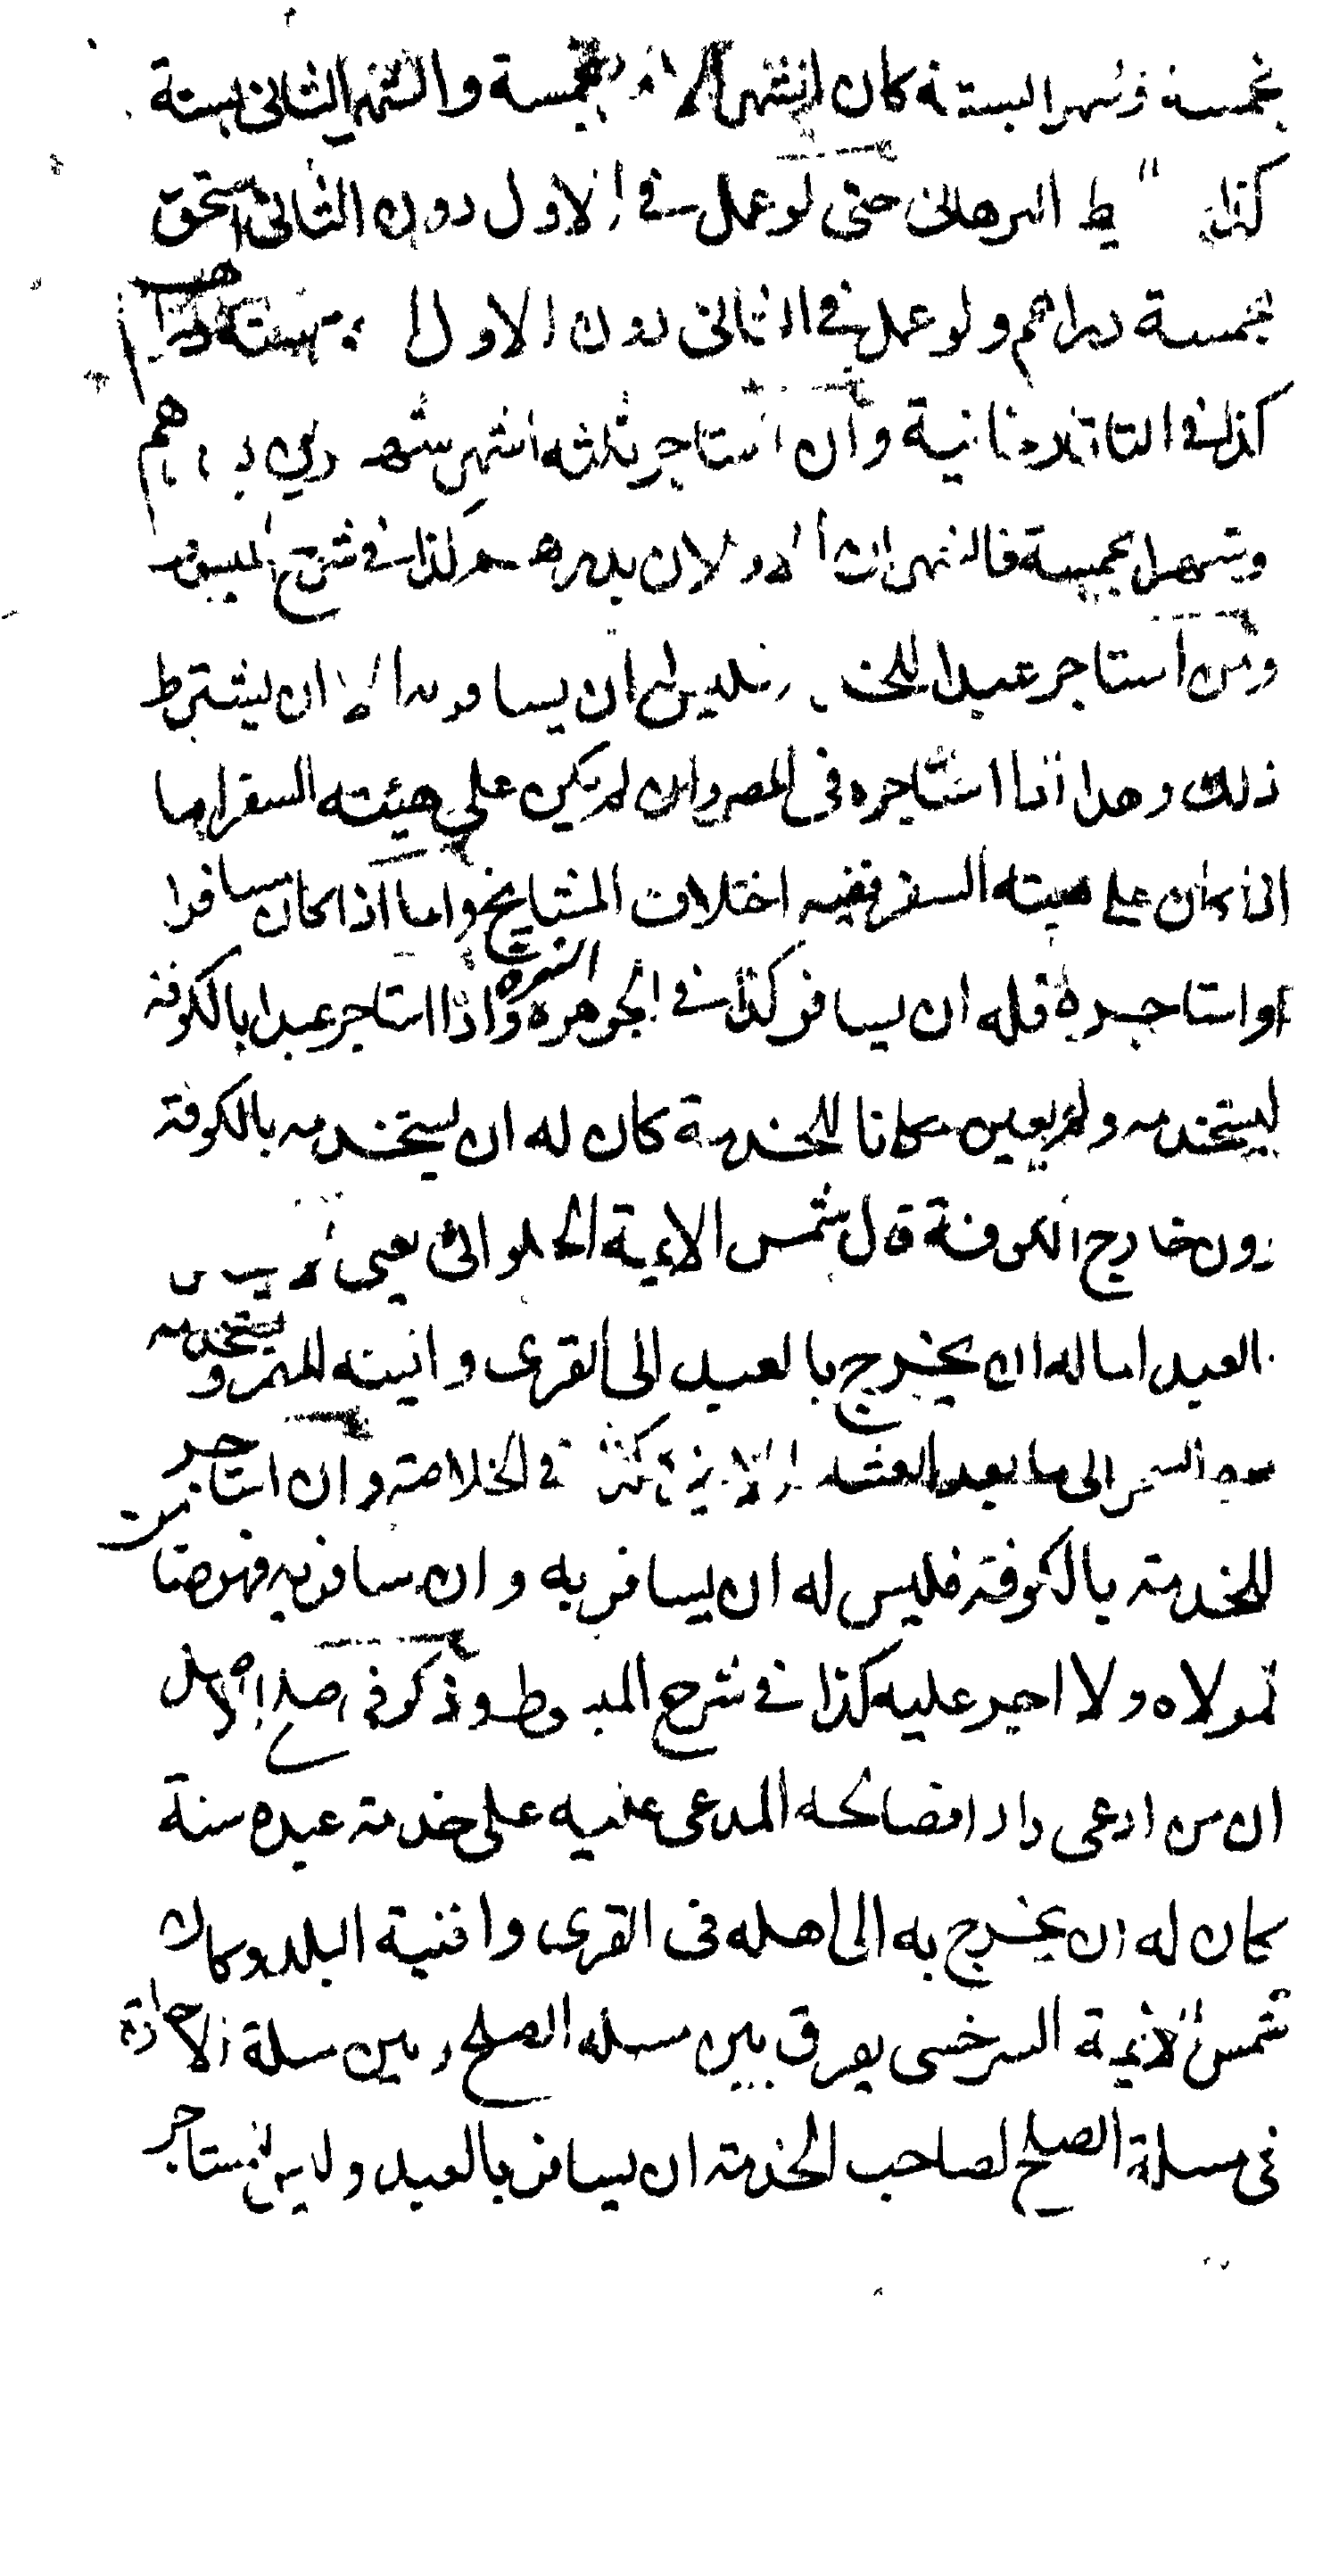 بخمسة وشهرا بستة كان الشهر الاول بخمسة والشهر الثانى بستة
كذا ط البرهانى حتى لو عمل فى الاول دون الثانى استحق
خمسة دراهم ولو عمل فى الثانى دون الاول ستة
كذا فى التاتارخانية وان استاجر ثلثه اشهر شهرين بدراهم
وشهرا بخمسة فالشهران الاولان بدرهم كذا فى شرح المبسوط
ومن استاجر عبدا للخدمة فليس له ان يسافر به الا ان يشترط
ذلك وهذا اذا استاجره فى المصر ولم يكن على هيئته السفر اما
اذا كان على هيئة السفر ففيه اختلاف المشايخ واما اذا كان مسافرا
او استاجره فله ان يسافر كذا فى الجوهرة النيرة واذا استاجر عبدا بالكوفة
ليستخدمه ولم يعين مكانا للخدمة كان له ان يستخدمه بالكوفة
دون خارج الكوفة قال شمس الايمة الحلوانى يعنى
العبد اما له ان يخرج بالعبد الى القرى وافنية المصر ويستخدمه
السحر الى ما بعد العشا الاخيرة كذا فى الخلاصة وان استاجر
للخدمة بالكوفة فليس له ان يسافر به وان سافر به فهو ضامن
لمولاه ولا اجر عليه كذا فى شرح المبسوط وذكر فى صلح الاصل
ان من ادعى دارا فصالحه المدعى عليه على خدمة عبده سنة
كان له ان يخرج به الى اهله فى القرى وافنية البلد وكان
شمس الايمة السرخسى يفرق بين مسلة الصلح وبين مسلة الاجارة
فى مسلة الصلح لصاحب الخدمة ان يسافر بالعبد وليس للمستاجر